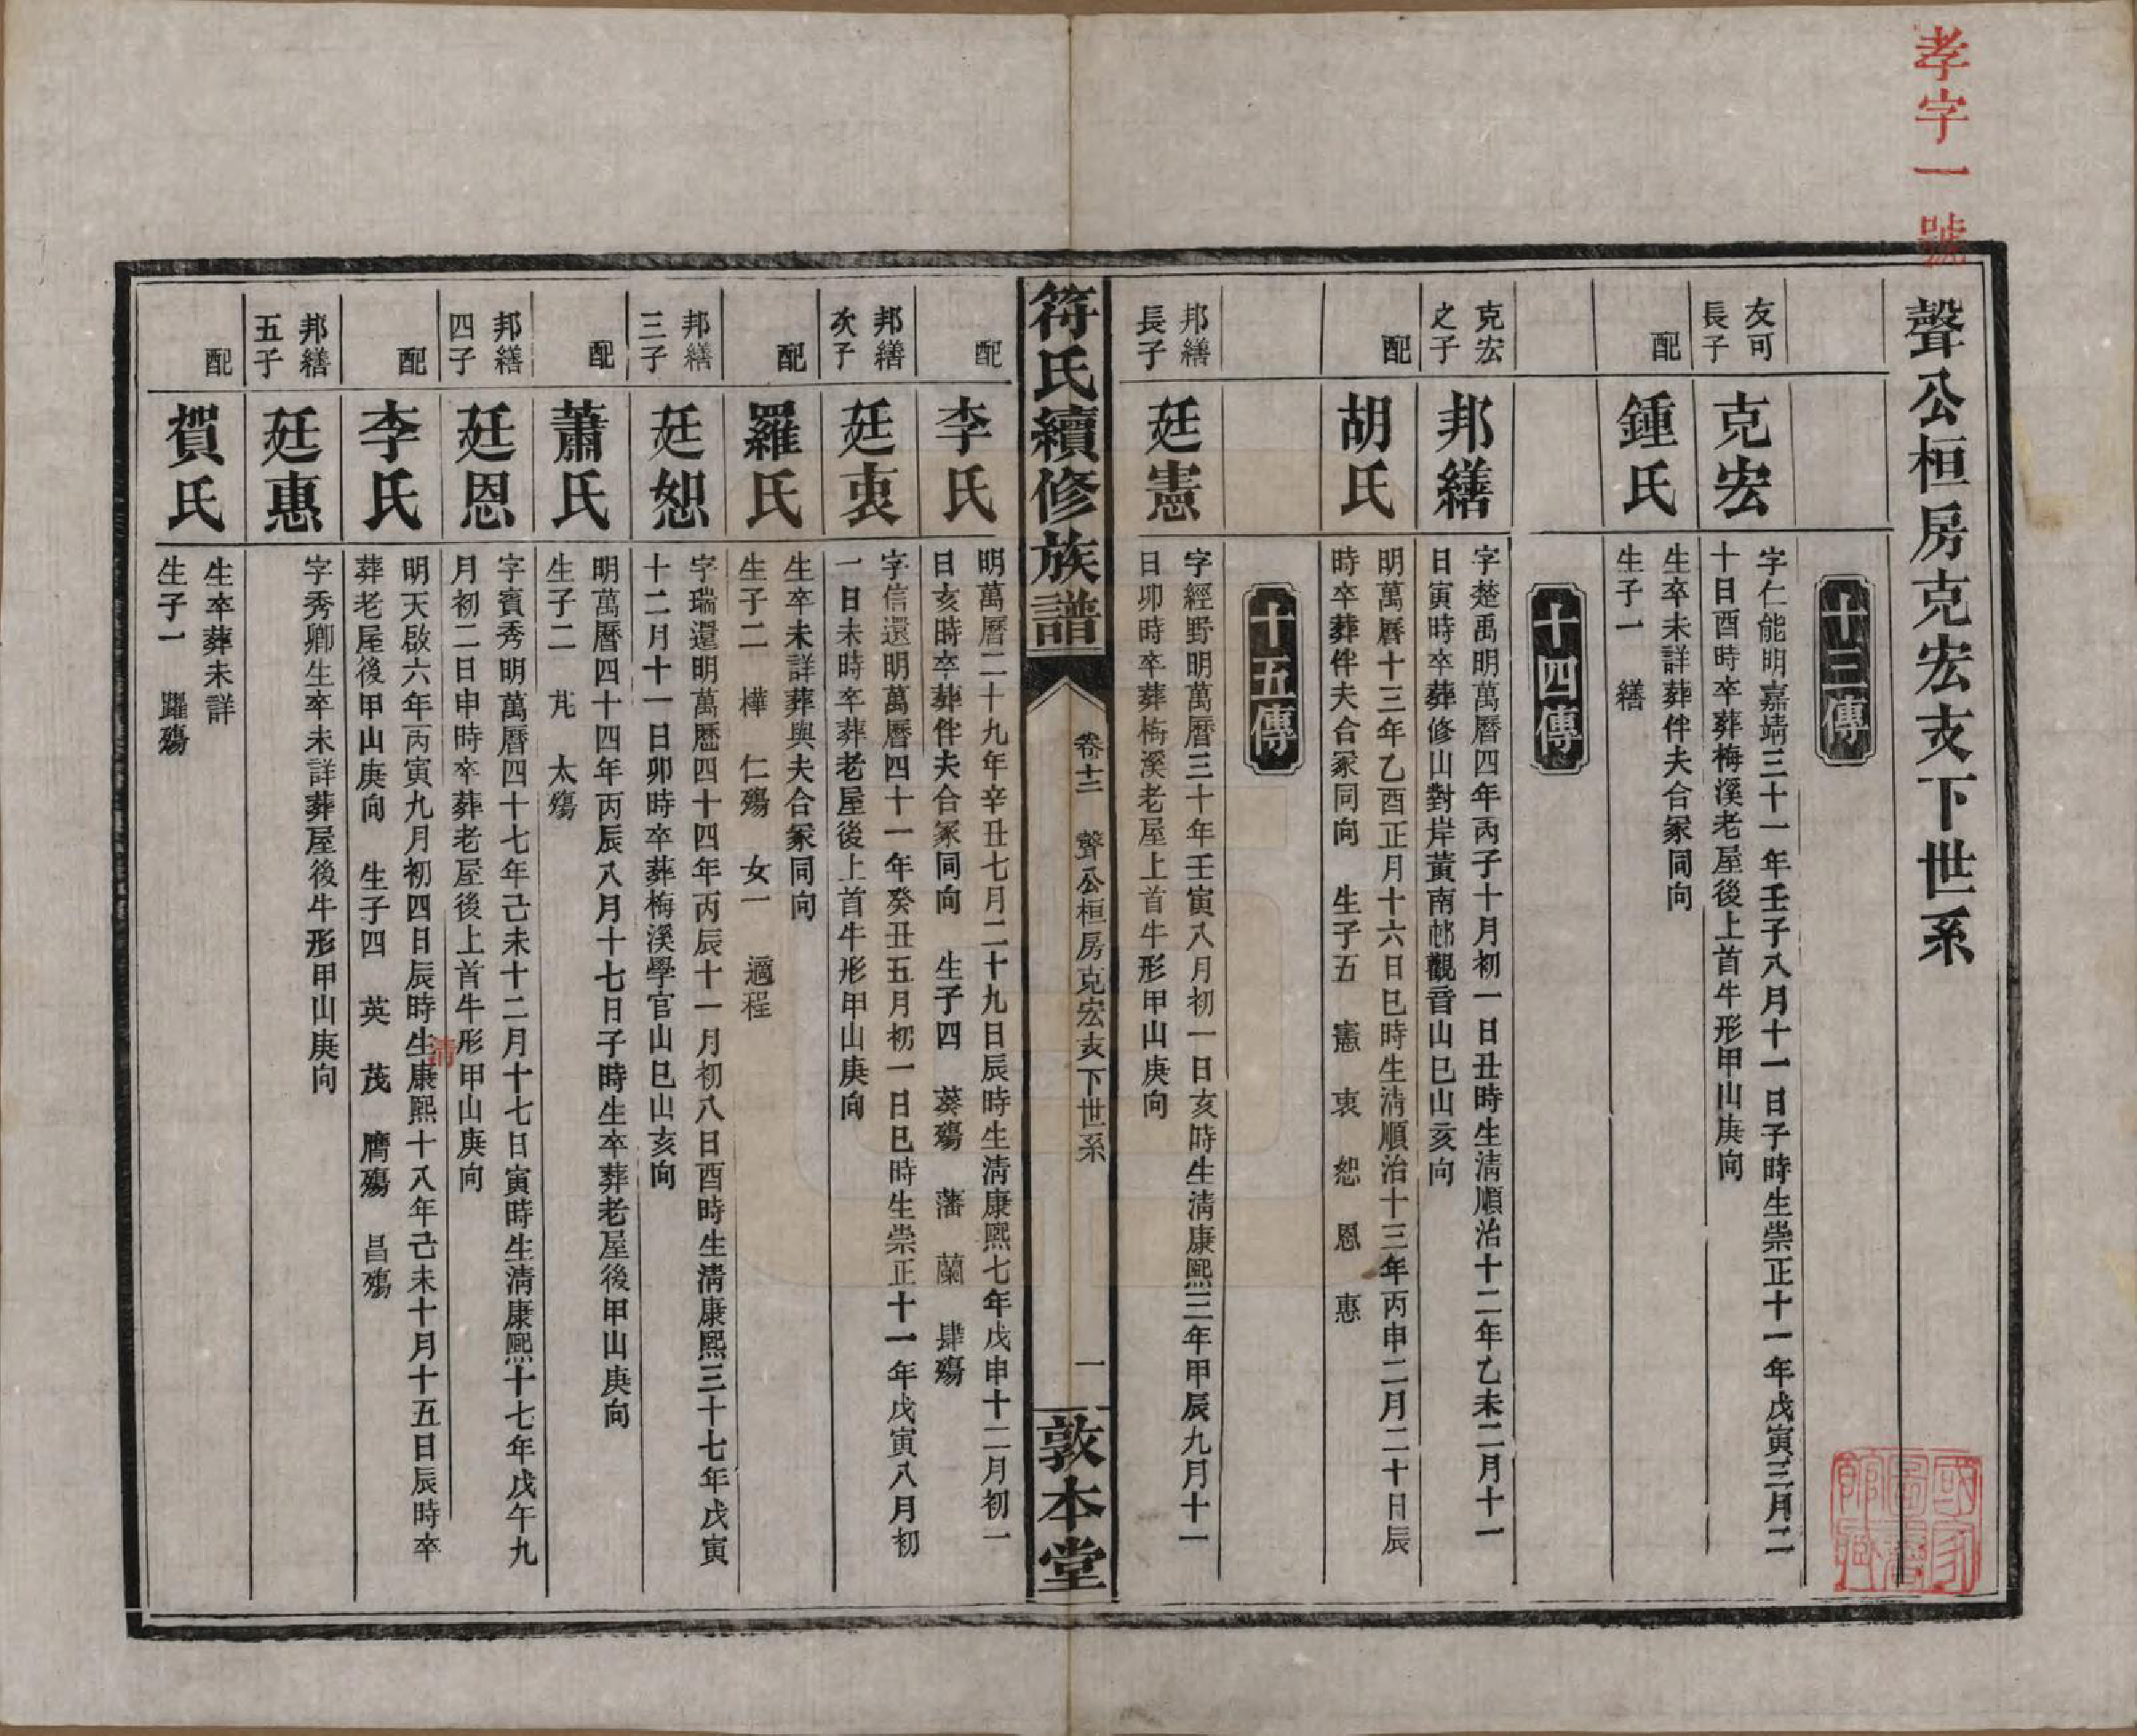 孝字一號
聲公桓房克宏支下世系
十三傳
友可
長子
克宏
字仁能明嘉靖三十一年壬子八月十一日子時生崇正十一年戊寅三月二
十日酉時卒葬梅溪老屋後上首牛形甲山庚向
配
鍾氏
生卒未詳葬伴夫合冢同向
生子一 繕
十四傳
克宏
之子
邦繕
字楚禹明萬曆四年丙子十月初一日丑時生清順治十二年乙未二月十一
日寅時卒葬修山對岸黃南邨觀音山巳山亥向
配
胡氏
明萬曆十三年乙酉正月十六日巳時生清順治十三年丙申二月二十日辰
時卒葬伴夫合冢同向 生子五 憲 衷 恕 恩 惠
十五傳
邦繕
長子
廷憲
字經野明萬曆三十年壬寅八月初一日亥時生清康熙三年甲辰九月十一
日卯時卒葬梅溪老屋上首牛形甲山庚向
符氏續修族譜
卷十二 聲公桓房克宏支下世系
一
敦本堂
配
李氏
明萬曆二十九年辛丑七月二十九日辰時生清康熙七年戊申十二月初一
日亥時卒葬伴夫合冢同向 生子四 葵殤 藩 蘭 肆殤
邦繕
次子
廷衷
字信還明萬曆四十一年癸丑五月初一日巳時生崇正十一年戊寅八月初
一日未時卒葬老屋後上首牛形甲山庚向
配
羅氏
生卒未詳葬與夫合冢同向
生子二 樺 仁殤 女一 適程
邦繕
三子
廷恕
字瑞還明萬歷四十四年丙辰十一月初八日酉時生清康熙三十七年戊寅
十二月十一日卯時卒葬梅溪學官山巳山亥向
配
蕭氏
明萬曆四十四年丙辰八月十七日子時生卒葬老屋後甲山庚向
生子二 芃 太殤
邦繕
四子
廷恩
字賓秀明萬曆四十七年己未十二月十七日寅時生清康熙十七年戊午九
月初二日申時卒葬老屋後上首牛形甲山庚向
配
李氏
明天啟六年丙寅九月初四日辰時生清康熙十八年己未十月十五日辰時卒
葬老屋後甲山庚向 生子四 英 茂 膺殤 昌殤
邦繕
五子
廷惠
字秀卿生卒未詳葬屋後牛形甲山庚向
配
賀氏
生卒葬未詳
生子一 躍殤
國家圖書館藏